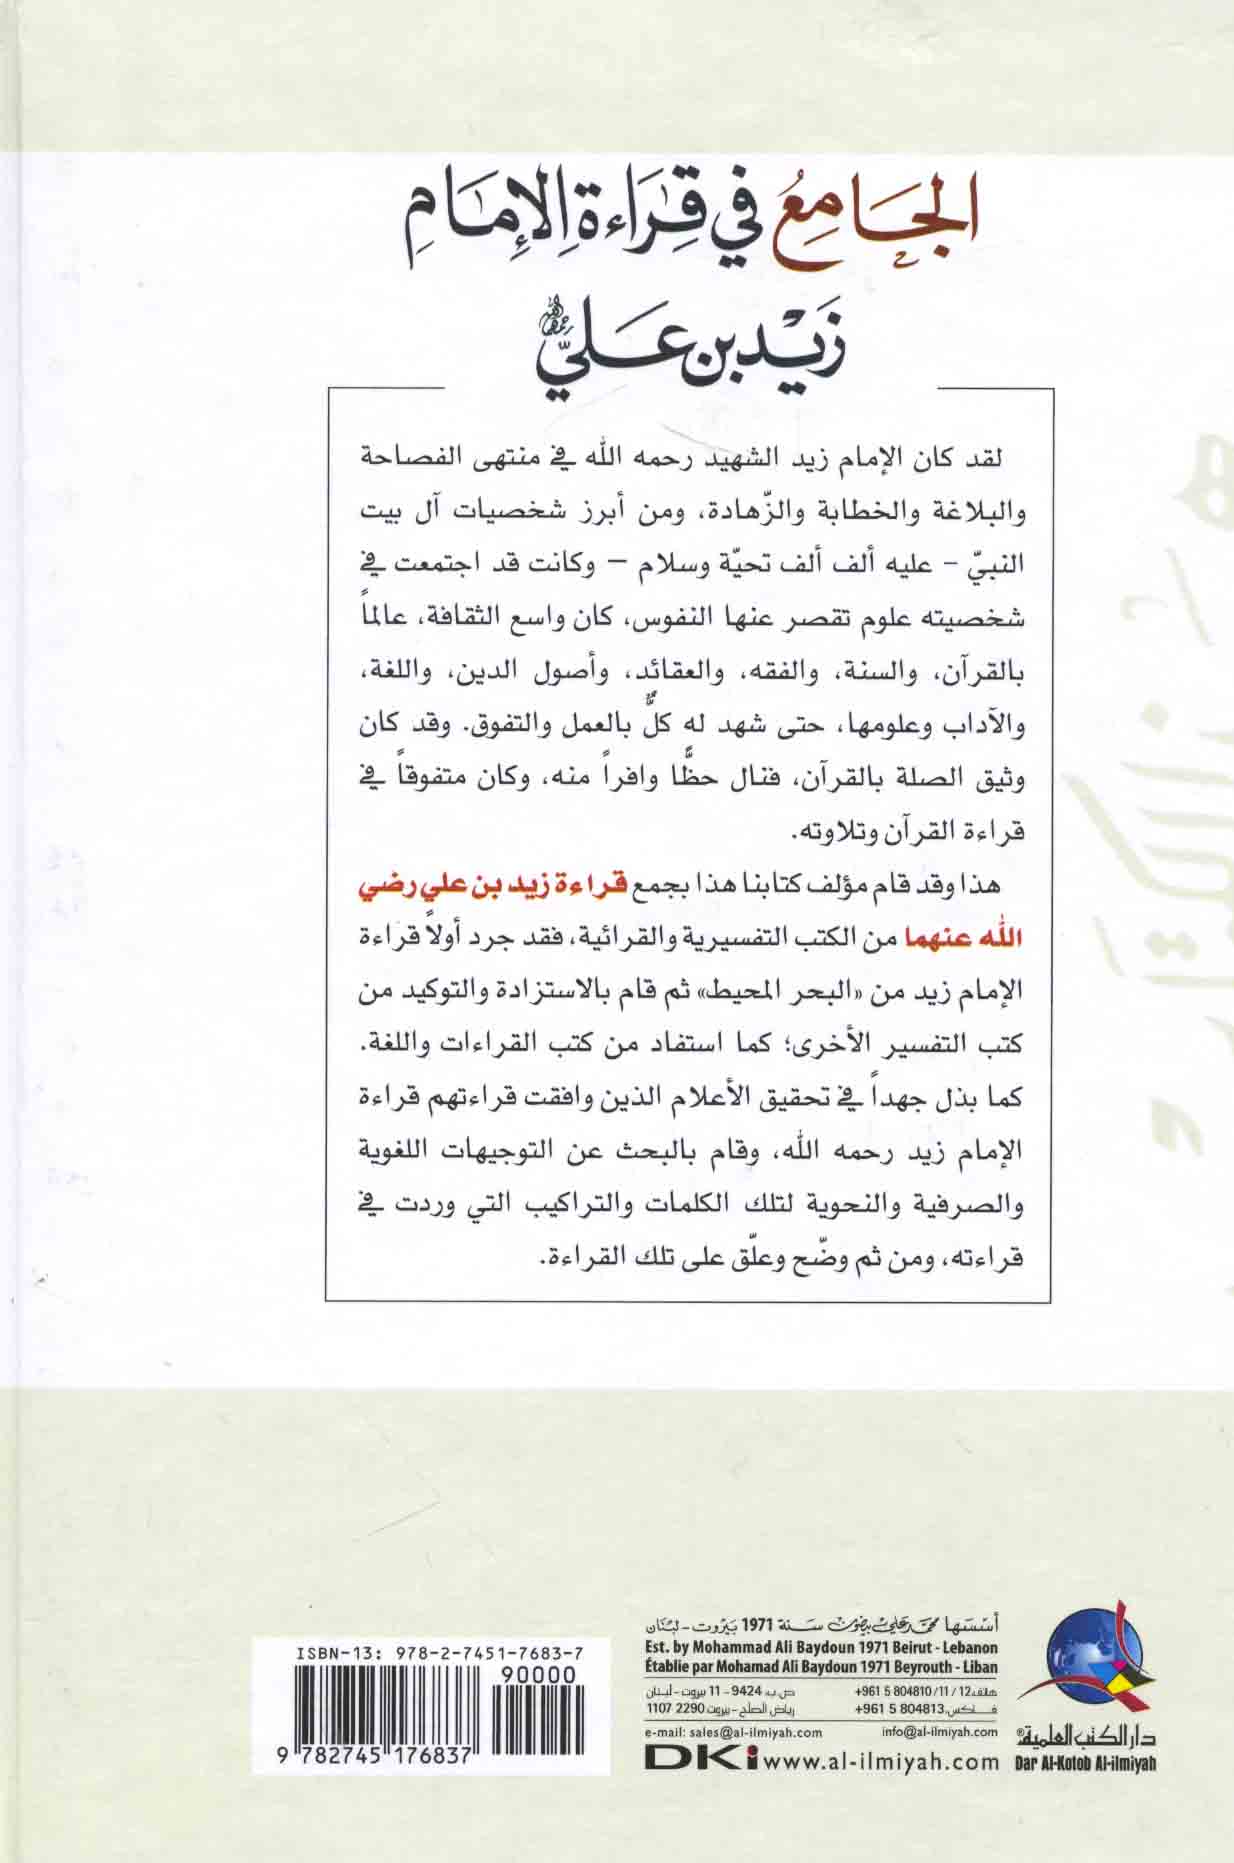 الجَامِعُ في قِرَاءةِ الإِمَامِ
زَيْد بن عَليّ رحمه الله
لقد كان الإمام زيد الشهيد رحمه الله في منتهى الفصاحة
والبلاغة والخطابة والزّهادة، ومن أبرز شخصيات آل بيت
النبيّ - عليه ألف ألف تحيّة وسلام – وكانت قد اجتمعت في
شخصيته علوم تقصر عنها النفوس، كان واسع الثقافة، عالماً
بالقرآن، والسنة، والفقه، والعقائد، وأصول الدين، واللغة،
والآداب وعلومها، حتى شهد له كلٌّ بالعمل والتفوق. وقد كان
وثيق الصلة بالقرآن، فنال حظًّا وافراً منه، وكان متفوقاً في
قراءة القرآن وتلاوته.
هذا وقد قام مؤلف كتابنا هذا بجمع قراءة زيد بن علي رضي
الله عنهما من الكتب التفسيرية والقرائية، فقد جرد أولاً قراءة
الإمام زيد من «البحر المحيط» ثم قام بالاستزادة والتوكيد من
كتب التفسير الأخرى؛ كما استفاد من كتب القراءات واللغة.
كما بذل جهداً في تحقيق الأعلام الذين وافقت قراءتهم قراءة
الإمام زيد رحمه الله، وقام بالبحث عن التوجيهات اللغوية
والصرفية والنحوية لتلك الكلمات والتراكيب التي وردت في
قراءته، ومن ثم وضّح وعلّق على تلك القراءة.
أسسها محمد علي بيضون سنة 1971 بيروت - لبنان
Est. by Mohammad Ali Baydoun 1971 Beirut - Lebanon
Établie par Mohamad Ali Baydoun 1971 Beyrouth - Liban
هاتف: +961 5 804810/11/12 ص.ب: 9424 - 11 بيروت - لبنان
فاكس: +961 5 804813 رياض الصلح - بيروت 2290 1107
e-mail: sales@al-ilmiyah.com info@al-ilmiyah.com
DKi www.al-ilmiyah.com
دار الكتب العلمية®
Dar Al-Kotob Al-ilmiyah
ISBN-13: 978-2-7451-7683-7
90000
9 782745 176837